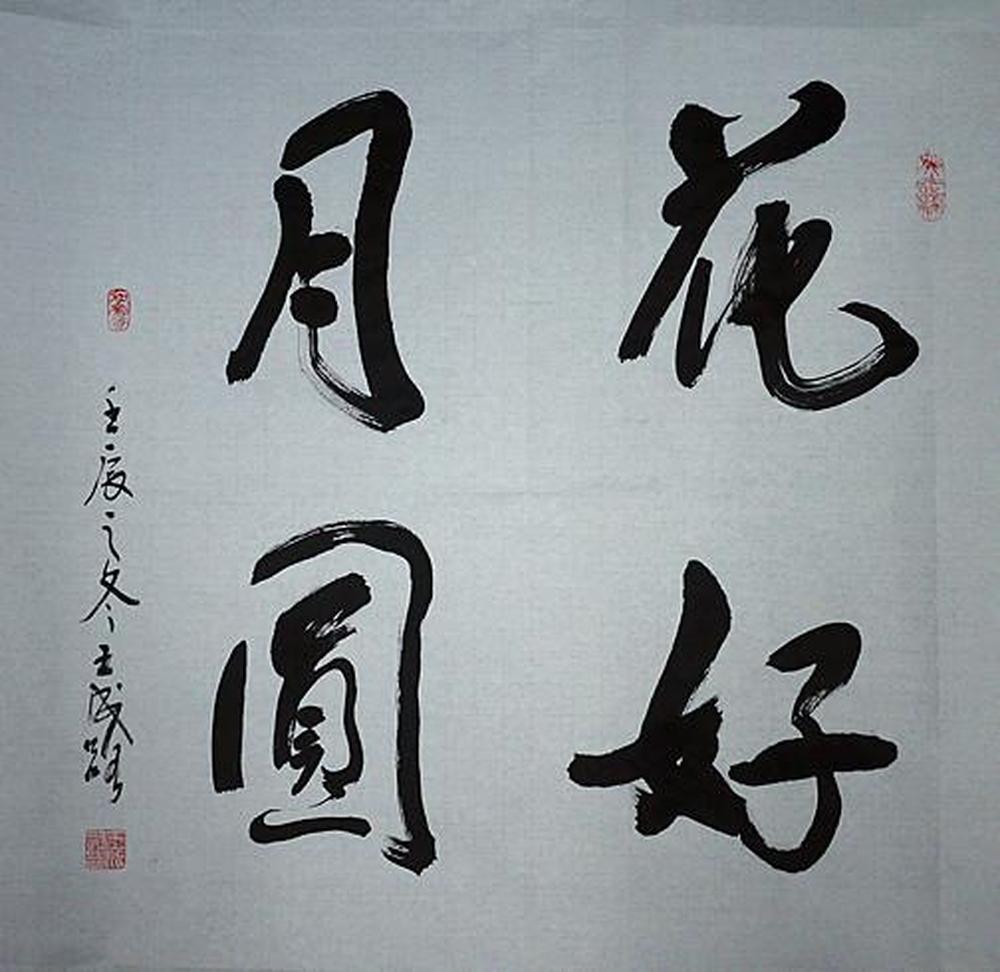 花好
月圓
壬辰之冬王成路